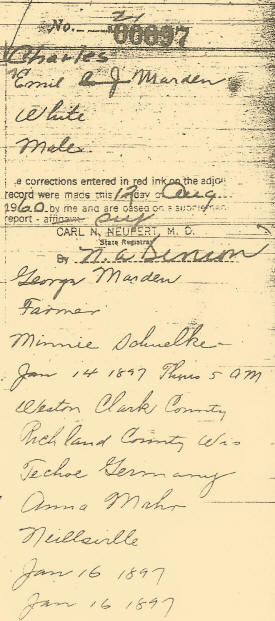 No. 21
00897
Charles
Emil A J Marden
White
Male
e corrections entered in red ink on the adjoi
record were made this 12 day of Aug
1960 by me and are based on a supplemen
report - affidavit
CARL N. NEUPERT, M. D.
State Registrar
By N. A. Benson
George Marden
Farmer
Minnie Schuelke
Jan 14 1897 Thurs 5 AM
Weston Clark County
Richland County Wis
Techoe Germany
Anna Mahr
Neillsville
Jan 16 1897
Jan 16 1897